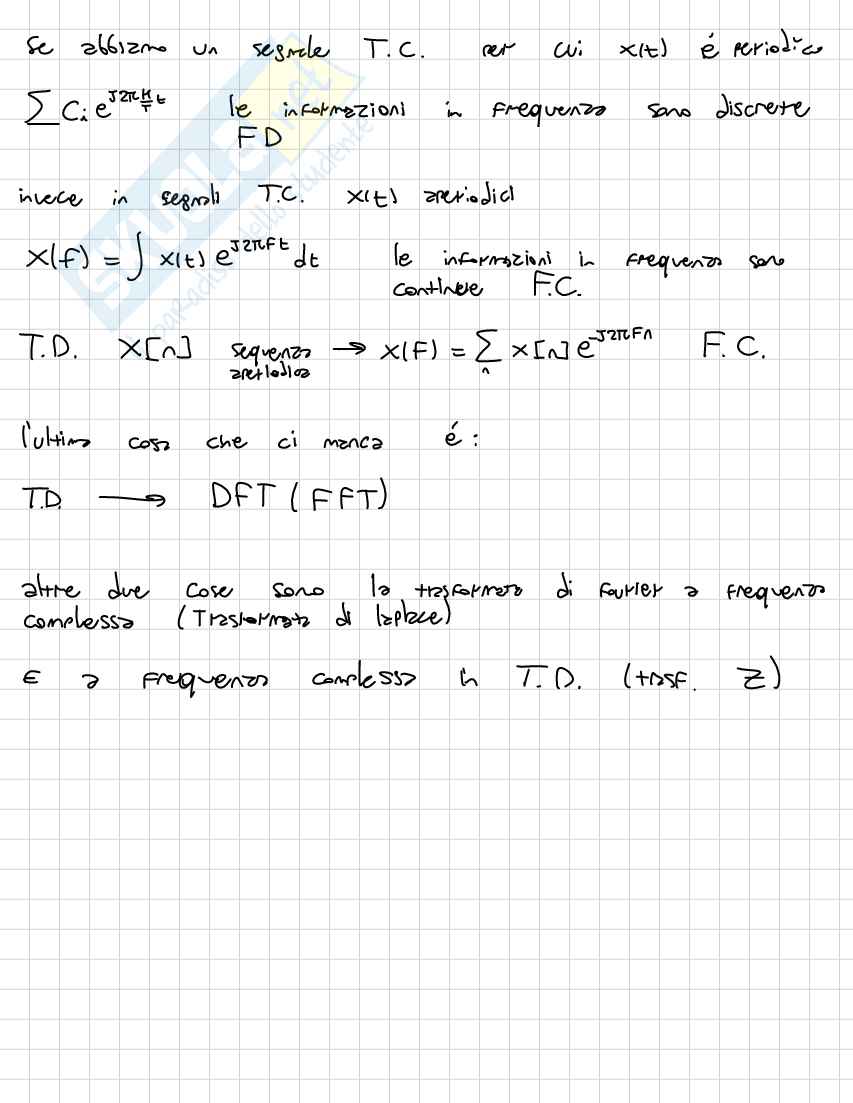 Se abbiamo un segnale T.C. per cui x(t) é periodico
∑ Ci e^{J2π K/T t} le informazioni in frequenza sono discrete
FD
invece in segnali T.C. x(t) aperiodici
X(f) = ∫ x(t) e^{J2πFt} dt le informazioni in frequenza sono
continue F.C.
T.D. X[n] sequenza aperiodica → X(F) = ∑_n x[n] e^{-J2πFn} F.C.
l'ultima cosa che ci manca é:
T.D. → DFT (FFT)
altre due cose sono la trasformata di fourier a frequenza
complessa (Trasformata di laplace)
E a frequenza complessa in T.D. (trasf. Z)
SKUOLA.net